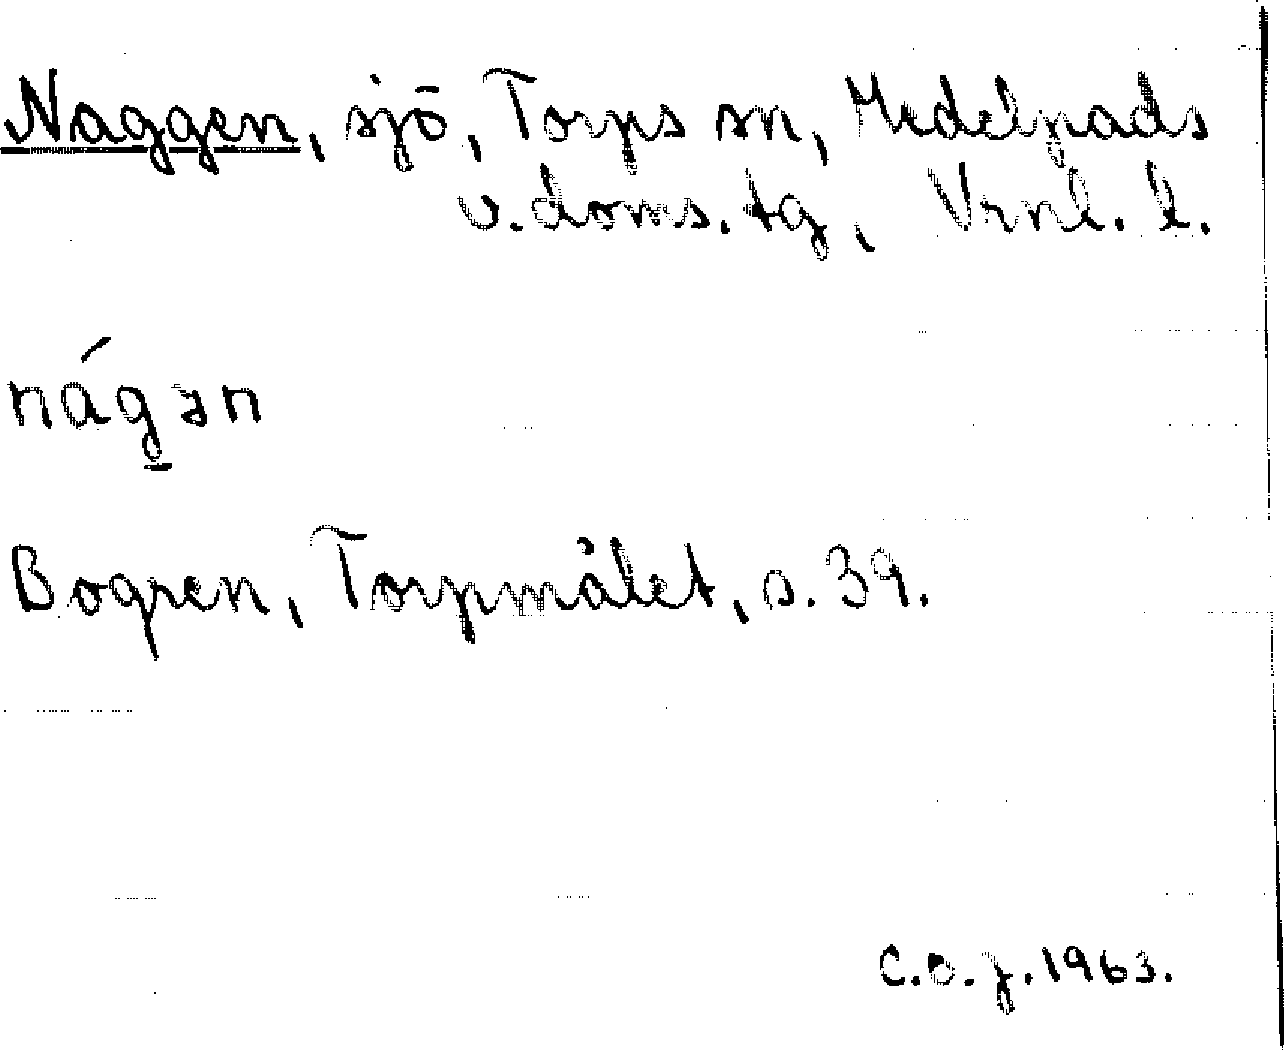 Naggen, sjö, Torps sn, Medelpads
v. doms. tg, Vrnl. l.
nág̲ən
Bogren, Torpmålet, s. 39.
C.O.J. 1963.